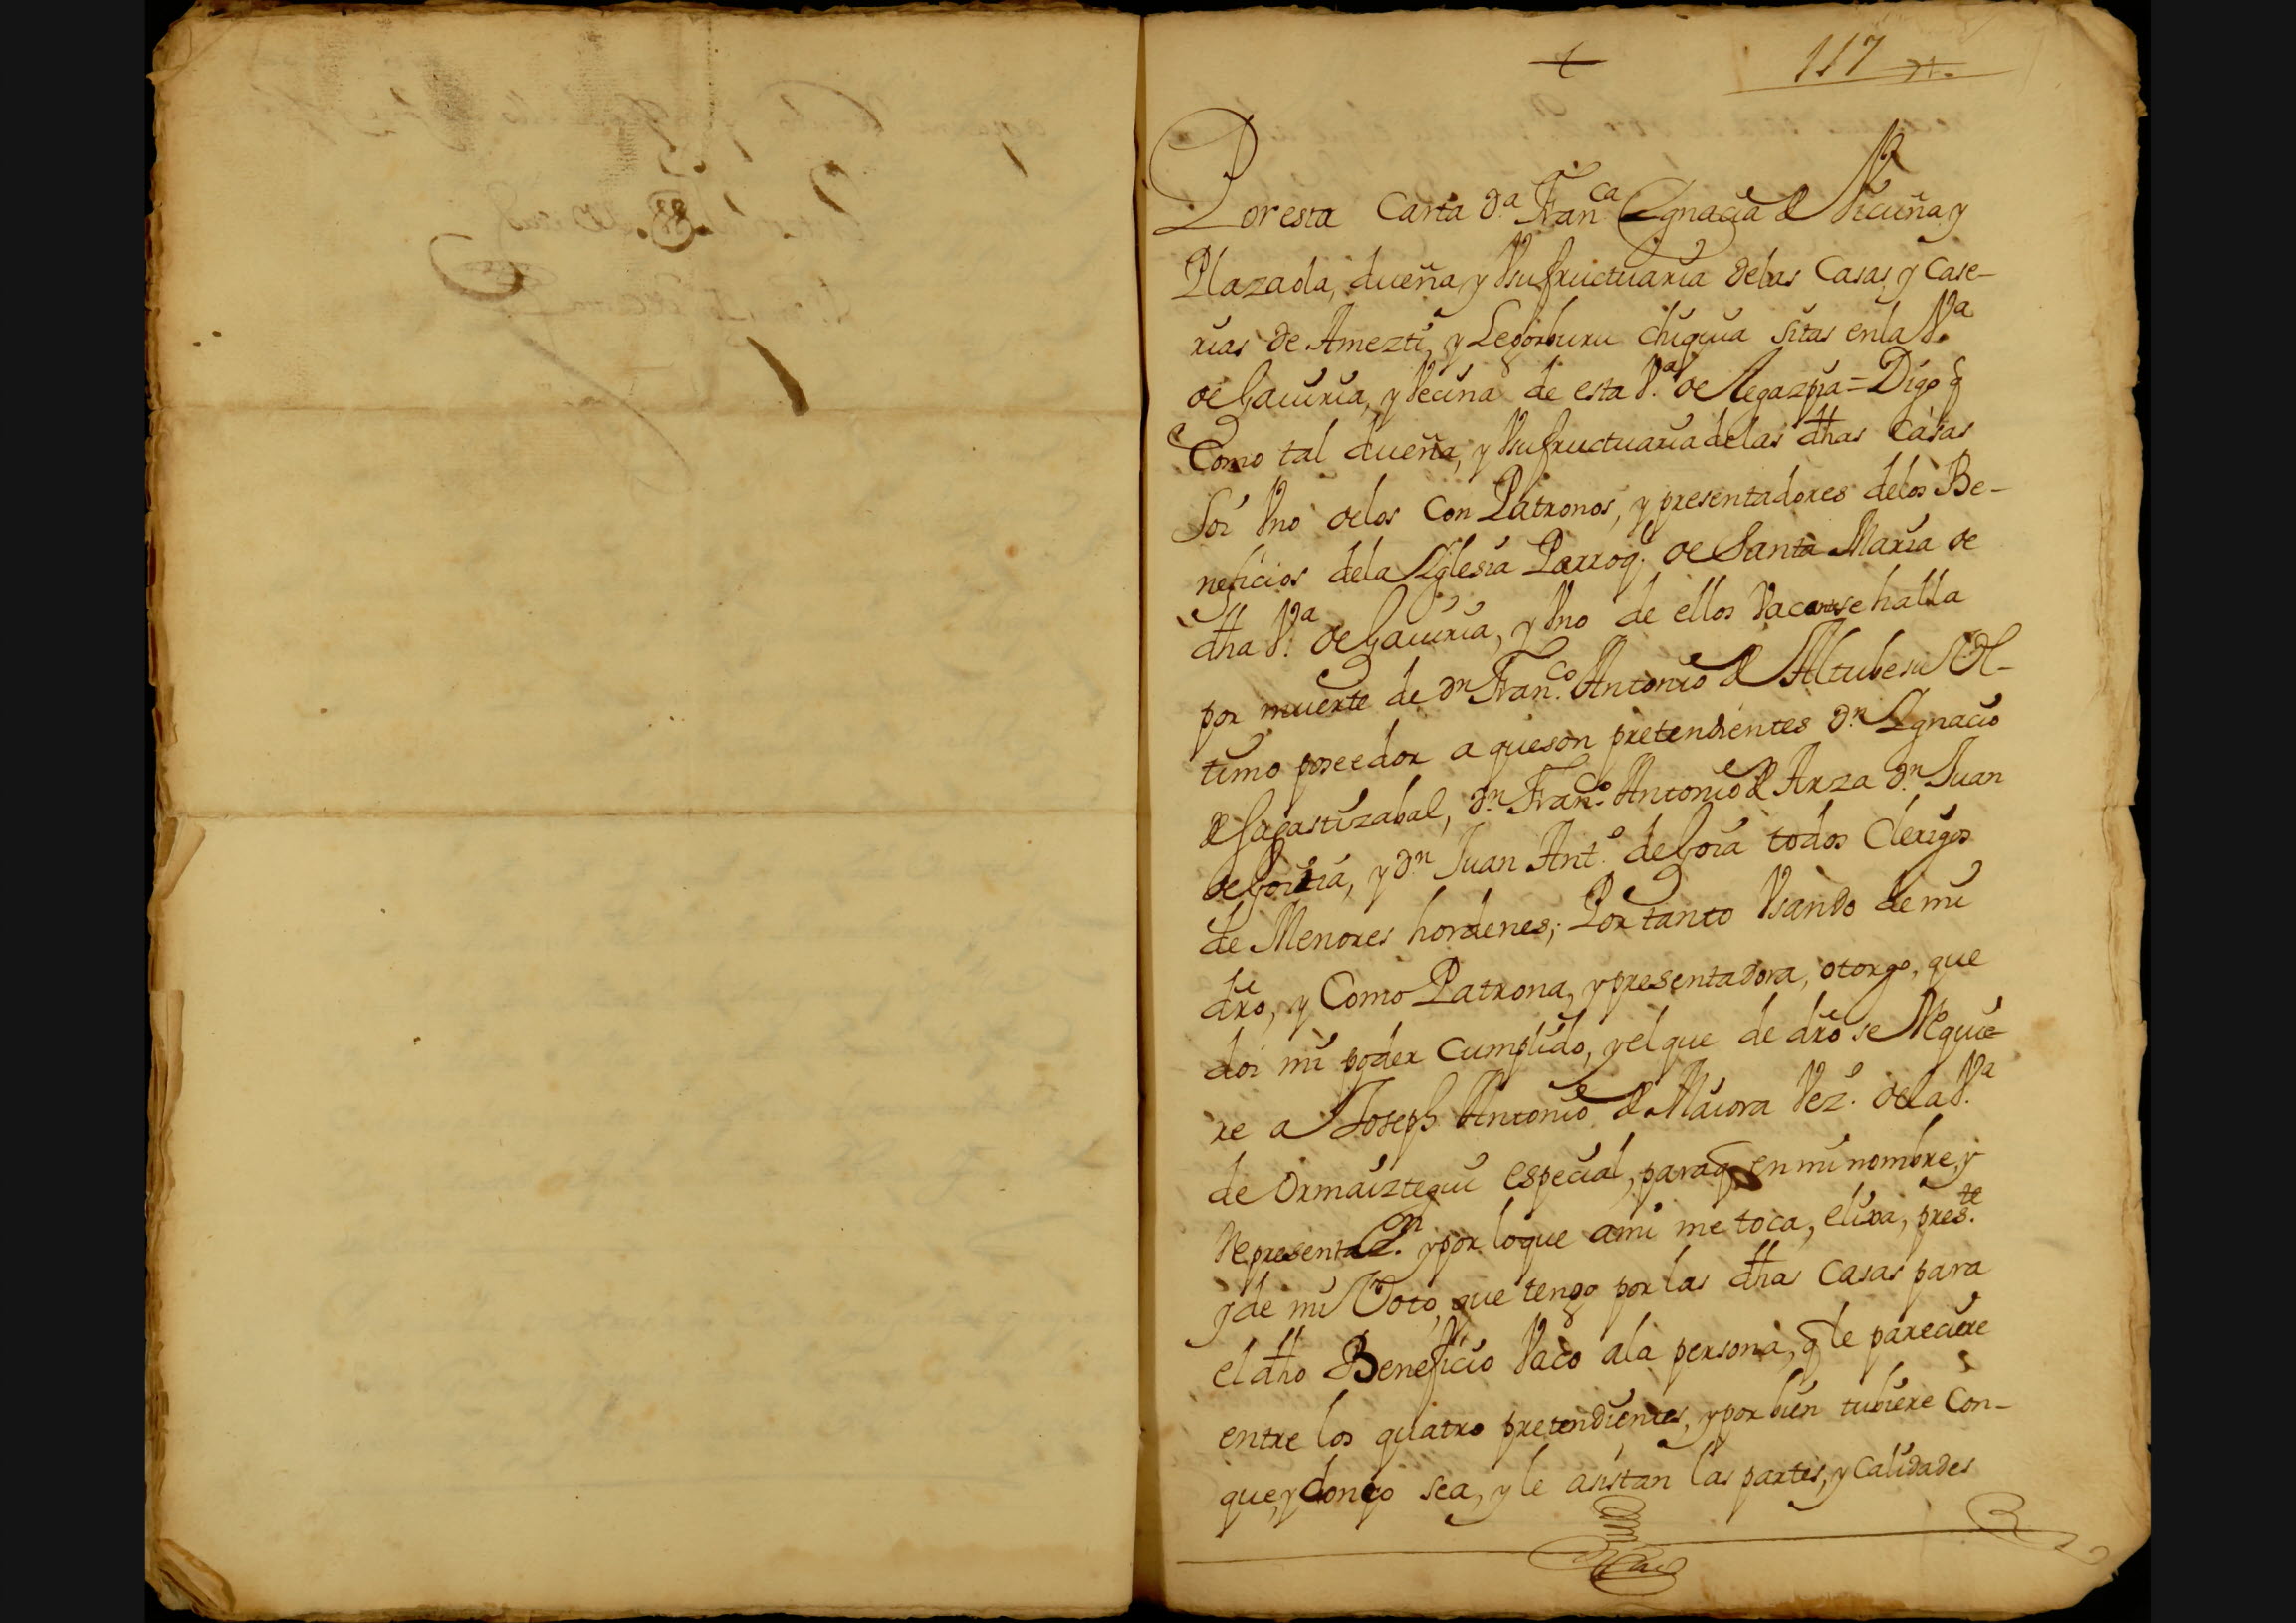 +
117
Por esta Carta D.ª Fran.ca Ygnacia de Vicuña y
Plazaola, dueña, y Vsufructuaria delas Casas, y Case-
rias de Amezti, y Legorburu chiquia sitas enla V.ª
de Gaviria, y Vecina de esta V.ª de Legazpia = Digo q̃
Como tal dueña, y Vsufructuaria delas dhas Casas
Soi Vno delos Con Patronos, y presentadores delos Be-
neficios dela Yglesia Parroq.l de Santa Maria de
dha V.ª de Gaviria, y Vno de ellos Vaco se halla
por muerte de Dn Fran.co Antonio de Altube su Vl-
timo poseedor a que son pretendientes D.n Ygnacio
de Sagastizabal, D.n Fran.co Antonio de Arza D.n Juan
de Goitia, y Dn Juan Ant.º de Goia todos Clerigos
de Menores hordenes; Por tanto Vsando de mi
dro, y Como Patrona, y presentadora, otorgo, que
doi mi poder Cumplido, y el que de dro se Requie-
re a Joseph Antonio de Maiora Vez.º dela V.ª
de Ormaiztegui especial, para q̃ en mi nombre, y
Representaz.n y por loque ami me toca, elixa, pres.te
y de mi Voto, que tengo por las dhas Casas para
el dho Beneficio Vaco ala persona, q̃ le pareciere
entre los quatro pretendientes, y por bien tubiere Con-
que, ydoneo sea, y le asistan las partes, y Calidades